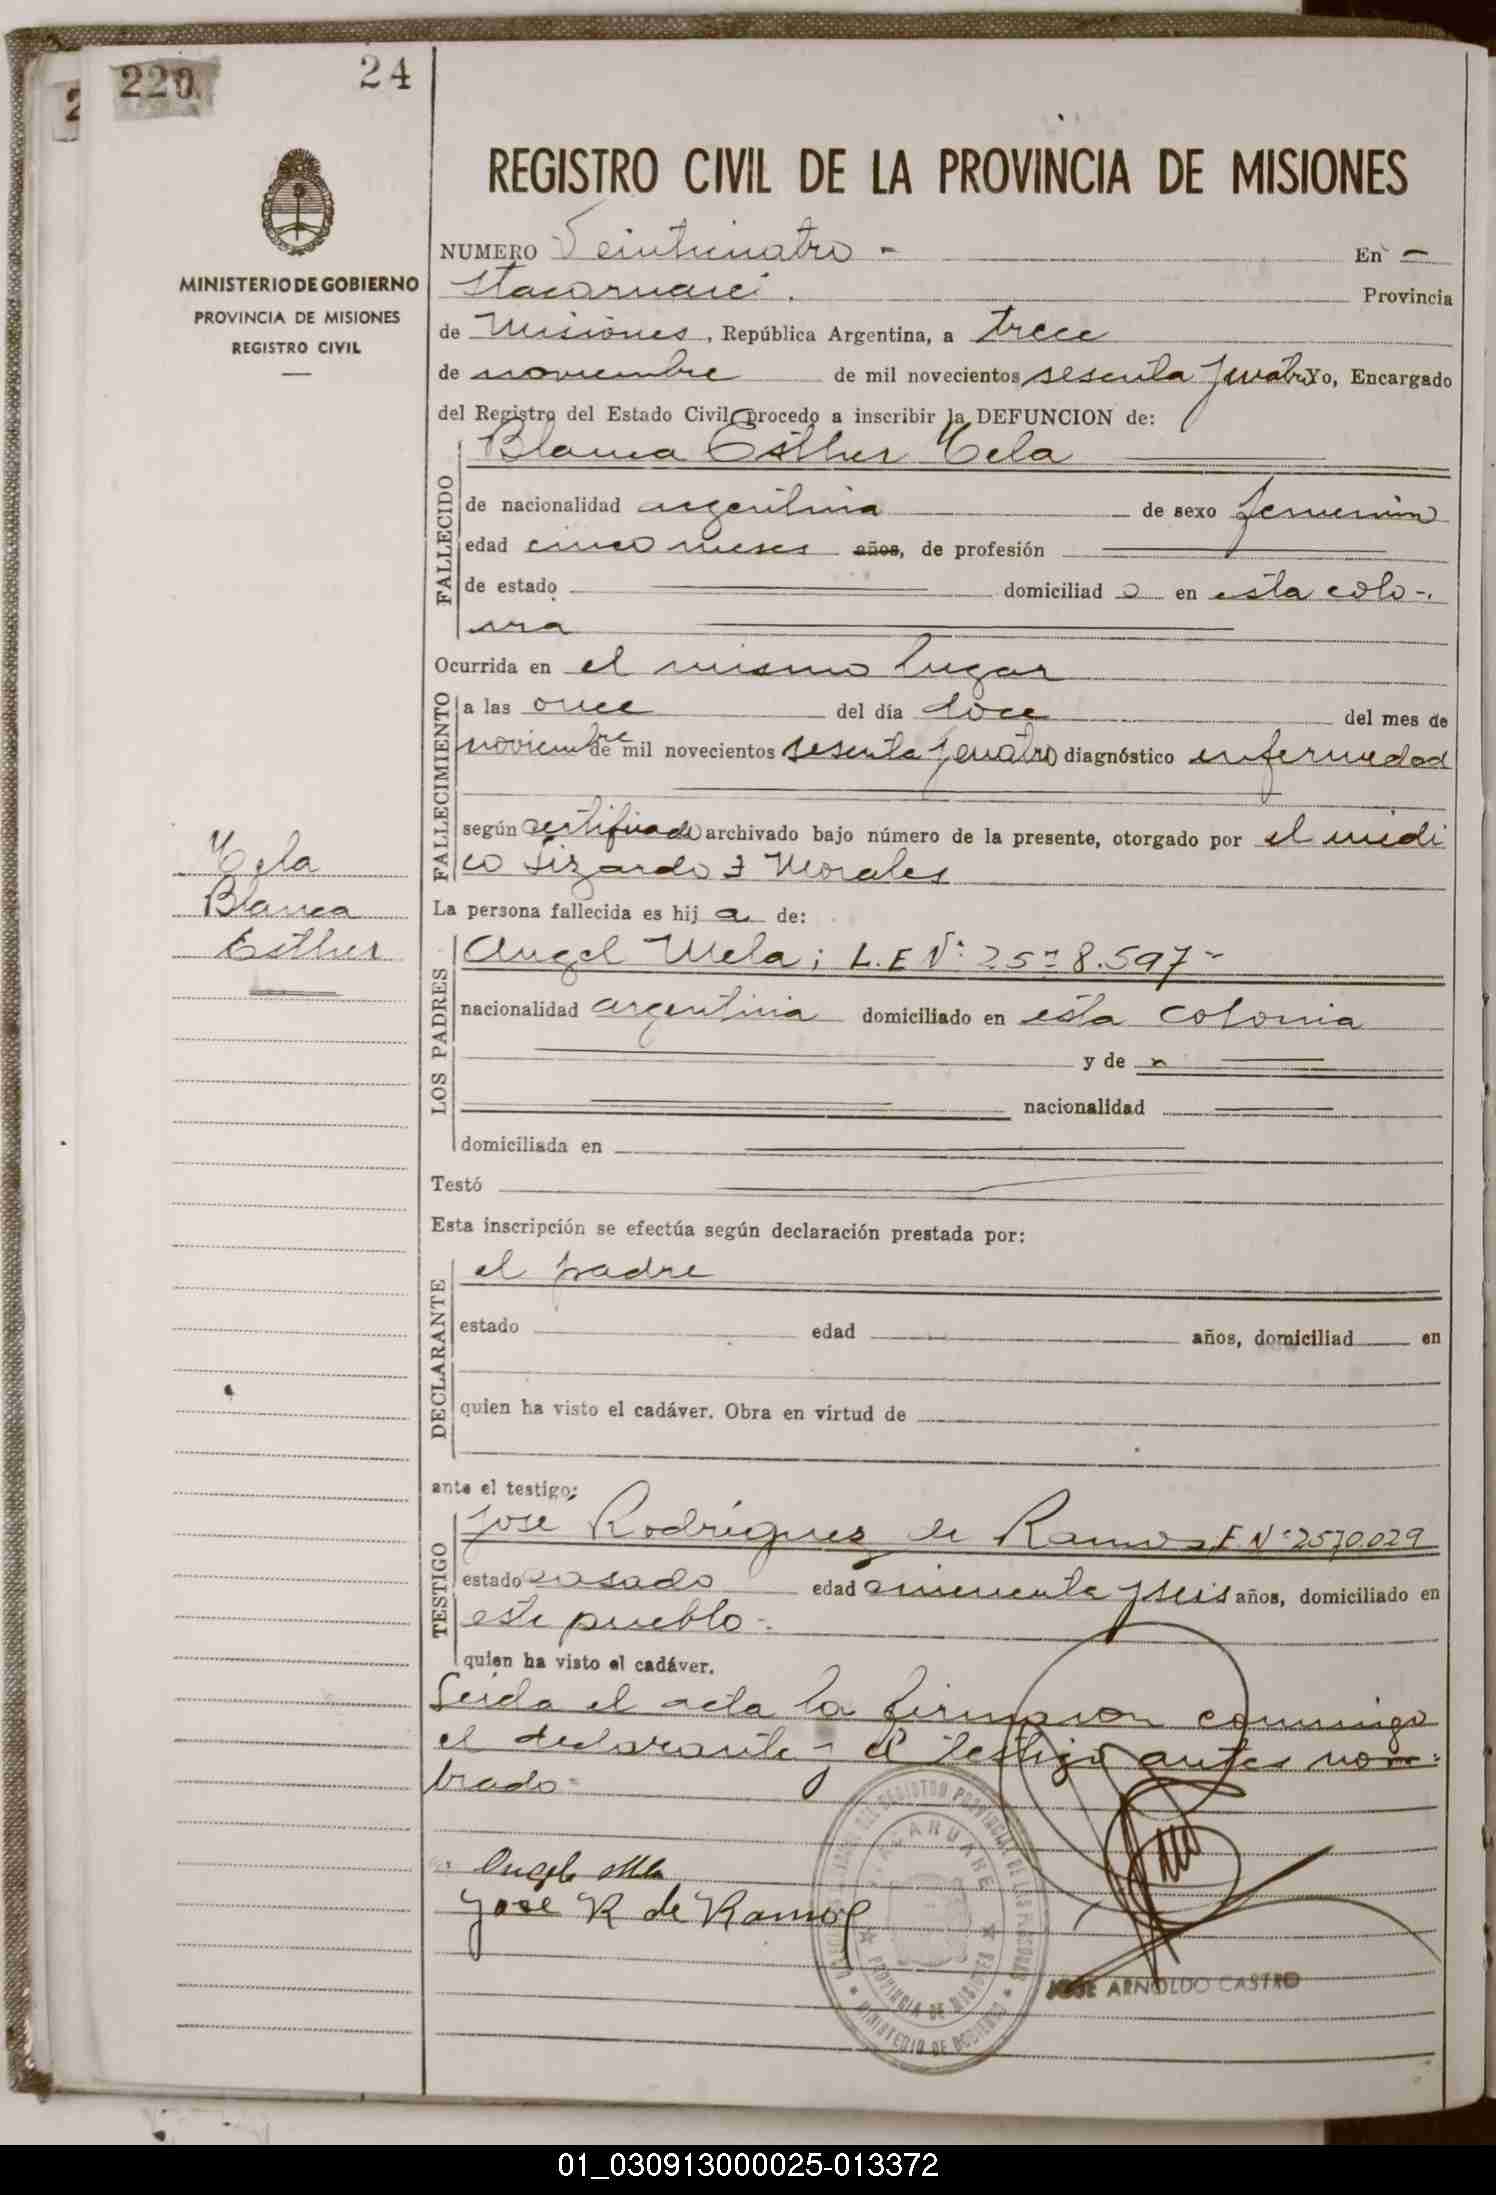 220 24
REGISTRO CIVIL DE LA PROVINCIA DE MISIONES
MINISTERIO DE GOBIERNO
PROVINCIA DE MISIONES
REGISTRO CIVIL
NUMERO Veinticuatro - En -
Itacaruaré. Provincia
de Misiones, República Argentina, a trece
de noviembre de mil novecientos sesenta y cuatro Yo, Encargado
del Registro del Estado Civil, procedo a inscribir la DEFUNCION de:
Blanca Esther Mela
FALLECIDO
de nacionalidad argentina de sexo femenino
edad cinco meses años, de profesión
de estado domiciliad o en esta colo-
nia
Ocurrida en el mismo lugar
FALLECIMIENTO
a las once del día doce del mes de
noviembre de mil novecientos sesenta y cuatro diagnóstico enfermedad
según certificado archivado bajo número de la presente, otorgado por el médi
co Lizardo Morales
Mela
Blanca
Esther
La persona fallecida es hij a de:
LOS PADRES
Angel Mela; L.E Nº
nacionalidad argentina domiciliado en esta colonia
y de
nacionalidad
domiciliada en
Testó
Esta inscripción se efectúa según declaración prestada por:
DECLARANTE
el padre
estado edad años, domiciliad en
quien ha visto el cadáver. Obra en virtud de
ante el testigo:
TESTIGO
José Rodríguez de Ramos E Nº 2570.029
estado casado edad cincuenta y seis años, domiciliado en
este pueblo.
quien ha visto el cadáver.
Leida el acta la firmaron conmigo
el declarante y el testigo antes nom-
brado-
Angel Mela
José R de Ramos
PROVINCIA DE MISIONES
MINISTERIO DE GOBIERNO
JOSE ARNOLDO CASTRO
01_030913000025-013372